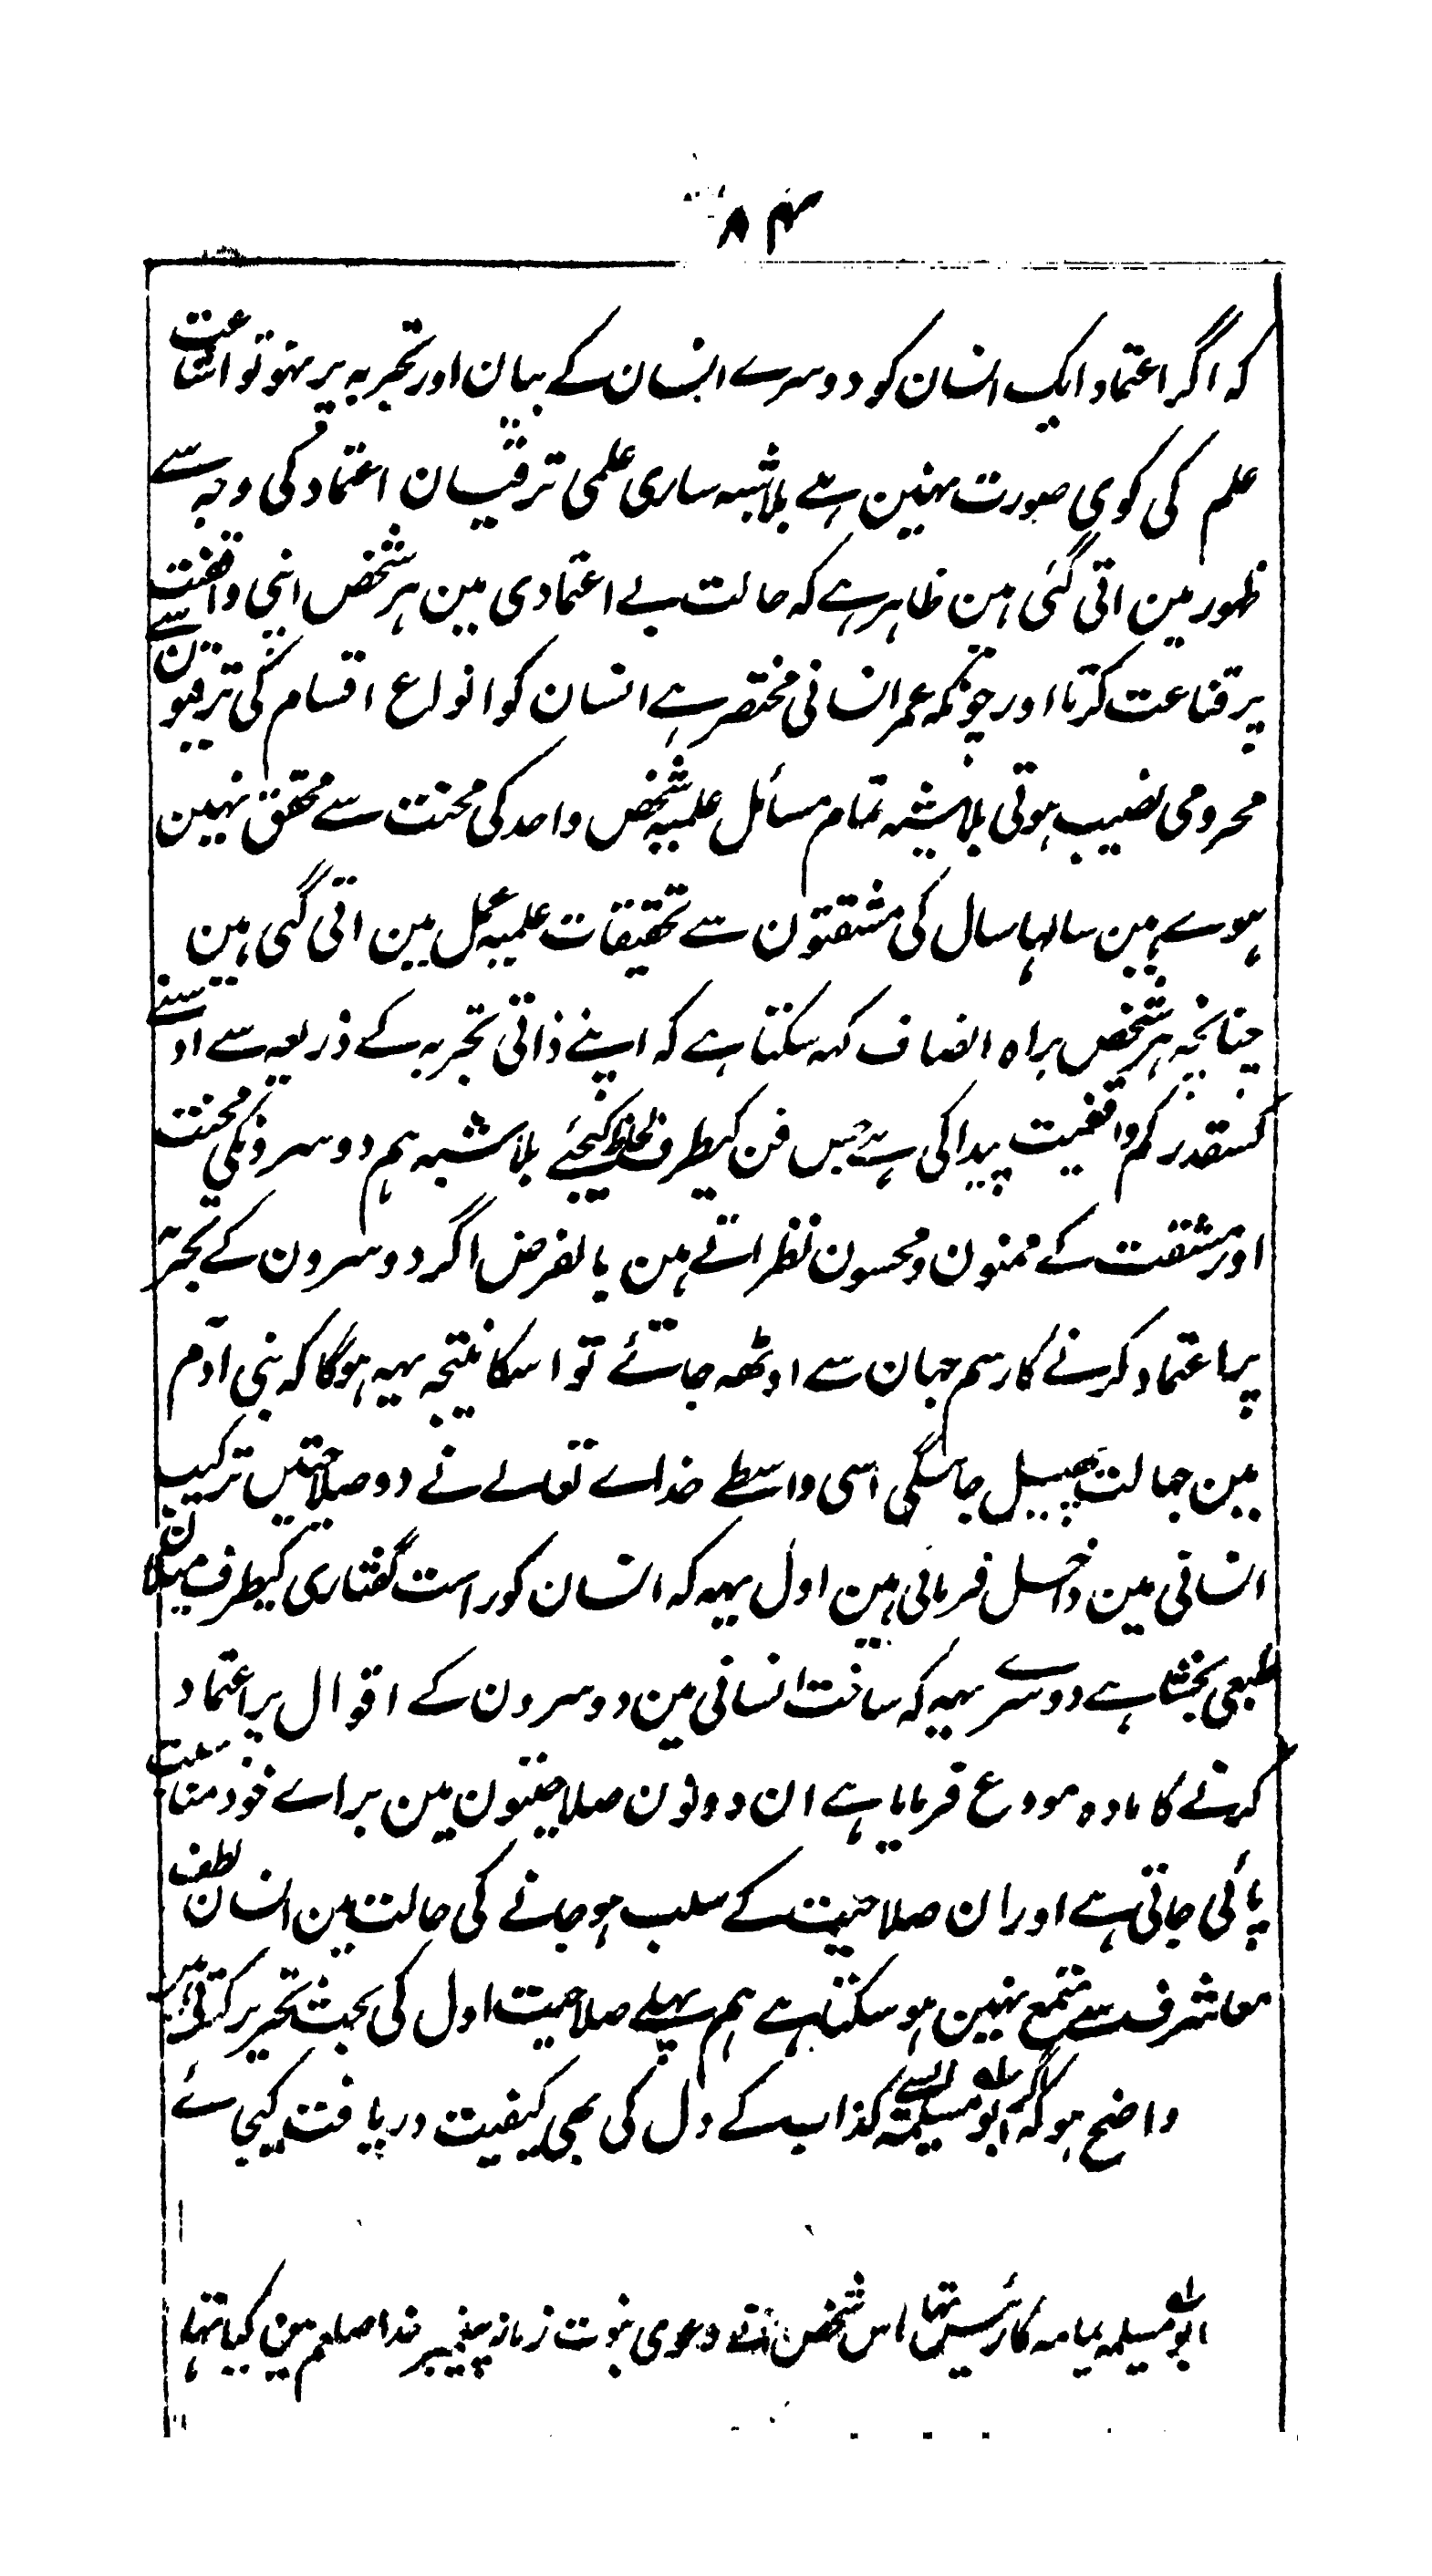 ۸۴
کہ اگر اعتماد ایک انسان کو دوسرے انسان کے بیان اور تجربہ پر نہو تو اشاعت
علم کی کوی صورت نہین ہے بلاشبہ ساری علمی ترقیان اعتماد کی وجہ سے
ظہور مین اتی گئی ہین ظاہر ہے کہ حالت بے اعتمادی مین ہر شخص اپنی واقفیت
پر قناعت کرتا اور چونکہ عمر انسانی مختصر ہے انسان کو انواع اقسام کی ترقیون سے
محرومی نصیب ہوتی بلاشبہ تمام مسائل علمیہ شخص واحد کی محنت سے محقق نہین
ہوے ہین سالہا سال کی مشقتون سے تحقیقات علمیہ عمل مین اتی گئی ہین
چنانچہ ہر شخص براہ انصاف کہہ سکتا ہے کہ اپنے ذاتی تجربہ کے ذریعہ سے اوسنے
کسقدر کم واقفیت پیدا کی ہے جس فن کیطرف لحاظ کیجئے بلاشبہ ہم دوسرونکی محنت
اور مشقت کے ممنون و محسون نظر اتے ہین بالفرض اگر دوسرون کے تجربہ
پر اعتماد کرنے کا رسم جہان سے اوٹھہ جائے تو اسکا نتیجہ یہہ ہوگا کہ بنی ادم
مین جہالت پھیل جائیگی اسی واسطے خداے تعالے نے دو صلاحیتین ترکیب
انسانی مین داخل فرمائی ہین اول یہہ کہ انسان کو راست گفتاری کیطرف میلان
طبعی بخشا ہے دوسرے یہہ کہ ساخت انسانی مین دوسرون کے اقوال پر اعتماد
کرنے کا مادہ مودع فرمایا ہے ان دونون صلاحیتون مین براے خود مناسبت
پائی جاتی ہے اور ان صلاحیت کے سلب ہو جانے کی حالت مین انسان لطف
معاشرت سے متمتع نہین ہو سکتا ہے ہم پہلے صلاحیت اول کی بحث تحریر کرتے ہین
واضح ہو کہ اگر ابو مسیلمہ ایسے کذاب کے دل کی بھی کیفیت دریافت کیجائے
ابو مسیلمہ یمامہ کا رئیس تھا اس شخص نے دعوی نبوت زمانہ پیغمبر خدا صلعم مین کیا تھا